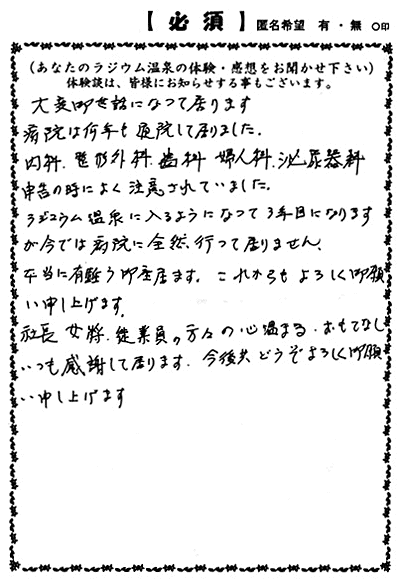 【 必 須 】 匿名希望 有 ・ 無 ○印
(あなたのラジウム温泉の体験・感想をお聞かせ下さい)
体験談は、皆様にお知らせする事もございます。
大変御世話になって居ります
病院は何年も通院して居りました.
内科. 整形外科. 歯科 婦人科. 泌尿器科
申告の時によく注意されていました.
ラジュウム温泉に入るようになって3年目になります
が今では病院に全然行って居りません.
本当に有難う御座居ます. これからもよろしく御願
い申し上げます.
社長 女将. 従業員の方々の心温まる. おもてなし
いつも感謝して居ります. 今後共どうぞよろしく御願
い申し上げます